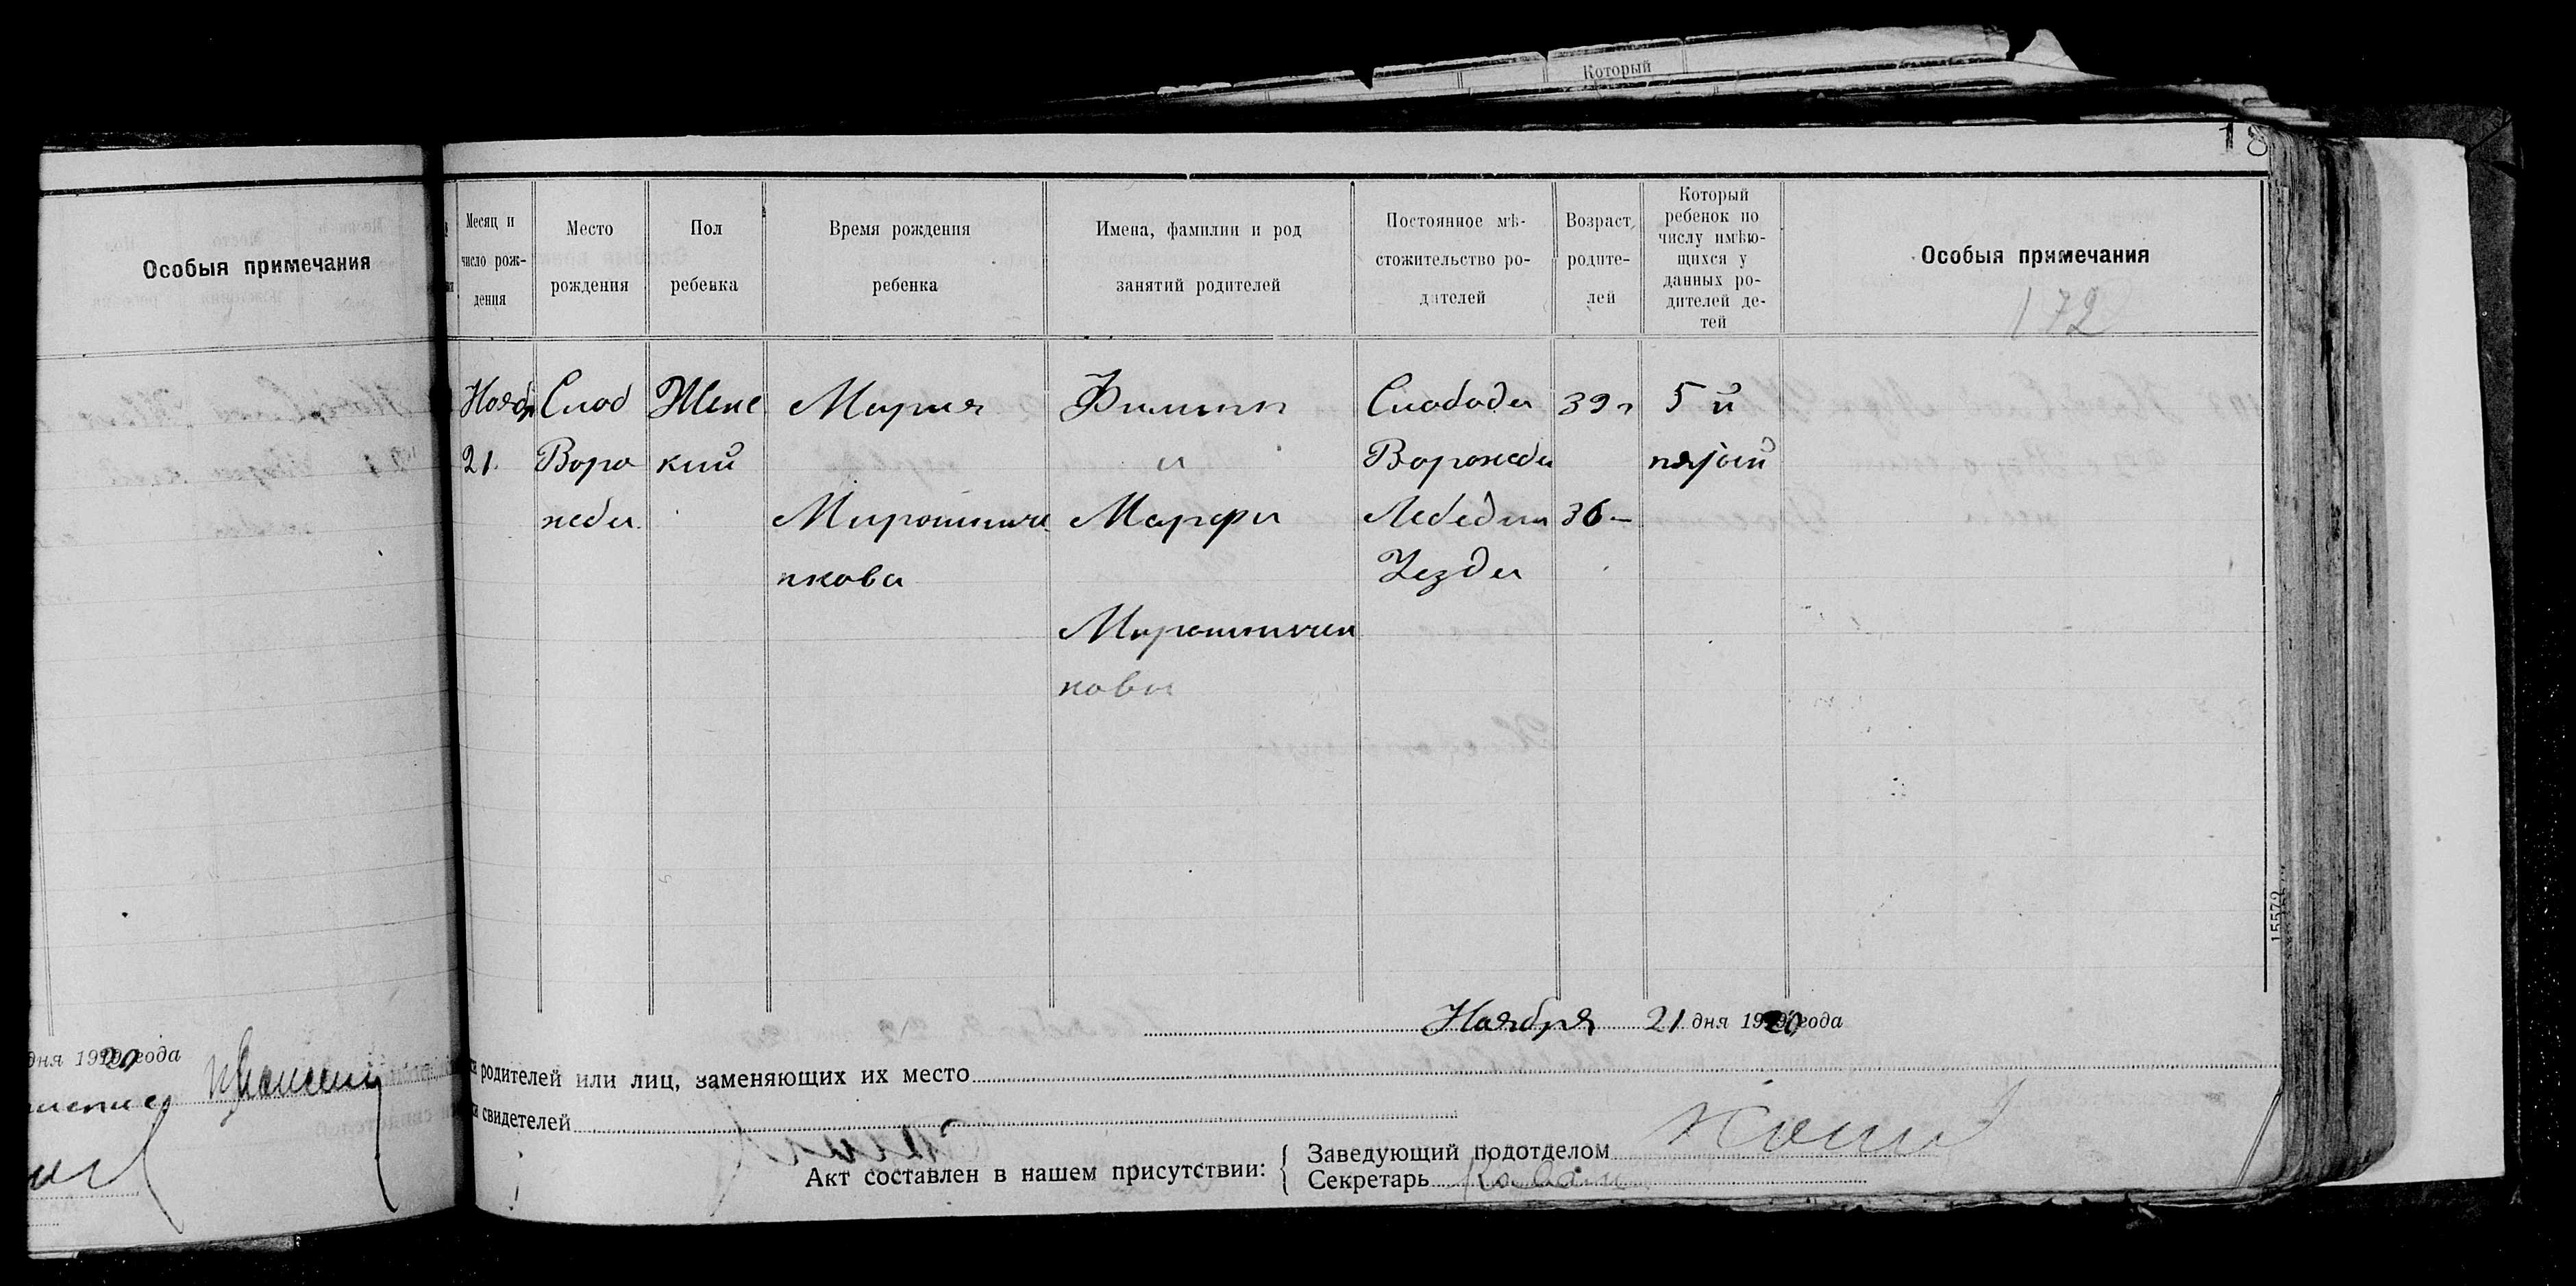 Который
18
Особыя примечания
Месяц и число рож-дения
Место рождения
Пол ребенка
Время рождения ребенка
Имена, фамилии и род занятий родителей
Постоянное мѣ-стожительство ро-дителей
Возраст родите-лей
Который ребенок по числу имѣю-щихся у данных ро-дителей де-тей
Особыя примечания
172
Ноябр
21
Слоб
Воро
жеба
Женс
кий
Мария
Мирошниче
нкова
Филипп
и
Марфа
Мирошничен
кова
Слобода
Ворожеба
Лебедин
Уезда
39 л
36 —
5 й
пятый
15572
Ноября 21 дня 1920 года
дня 1920 года
родителей или лиц, заменяющих их место
свидетелей
Акт составлен в нашем присутствии:
Заведующий подотделом
Секретарь